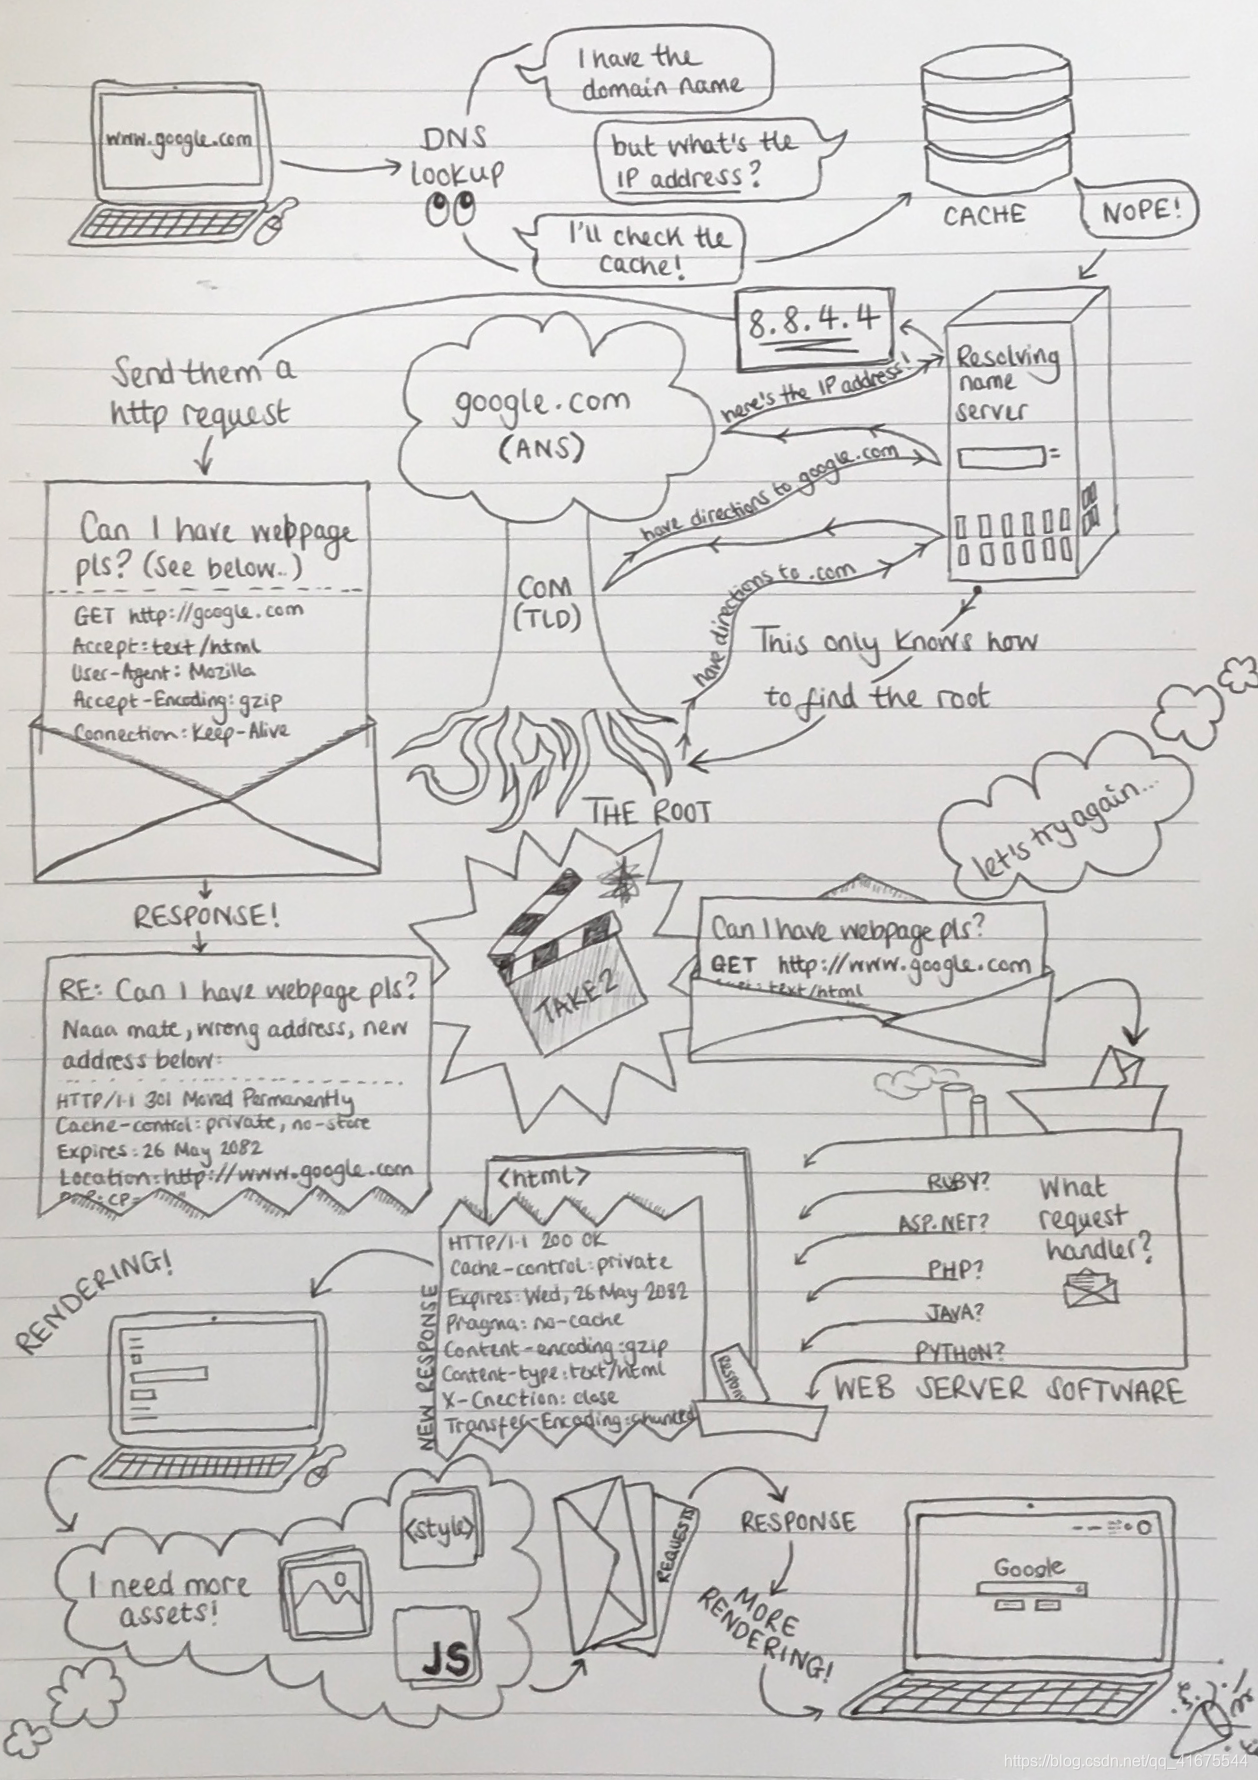 www.google.com
DNS
lookup
I have the
domain name
but what's the
IP address?
I'll check the
cache!
CACHE
NOPE!
8.8.4.4
Resolving
name
server
here's the IP address!
google.com
(ANS)
have directions to google.com
COM
(TLD)
have directions to .com
This only knows how
to find the root
THE ROOT
Send them a
http request
Can I have webpage
pls? (See below..)
GET http://google.com
Accept:text/html
User-Agent: Mozilla
Accept-Encoding: gzip
Connection: Keep-Alive
RESPONSE!
RE: Can I have webpage pls?
Naaa mate, wrong address, new
address below:
HTTP/1.1 301 Moved Permanently
Cache-control: private, no-store
Expires: 26 May 2082
Location: http://www.google.com
TAKE 2
let's try again...
Can I have webpage pls?
GET http://www.google.com
text/html
What
request
handler?
RUBY?
ASP.NET?
PHP?
JAVA?
PYTHON?
WEB SERVER SOFTWARE
<html>
NEW RESPONSE
HTTP/1.1 200 OK
Cache-control: private
Expires: Wed, 26 May 2082
Pragma: no-cache
Content-encoding: gzip
Content-type: text/html
X-Cnection: close
Transfer-Encoding: chunked
RENDERING!
I need more
assets!
<style>
JS
REQUESTS
RESPONSE
MORE
RENDERING!
Google
https://blog.csdn.net/qq_41675544